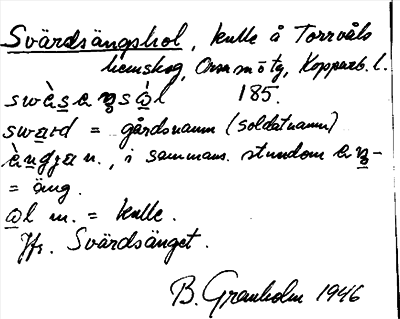 Svärdsängshol, kulle å Torrvåls
hemskog, Orsa mötg, Kopparb. l.
swèsaŋsàl 185.
sward = gårdsnamn (soldatnamn)
èŋgjan., i sammans. stundom aŋ-
= äng.
al m. = kulle.
Jfr. Svärdsänget.
B. Granholm 1946